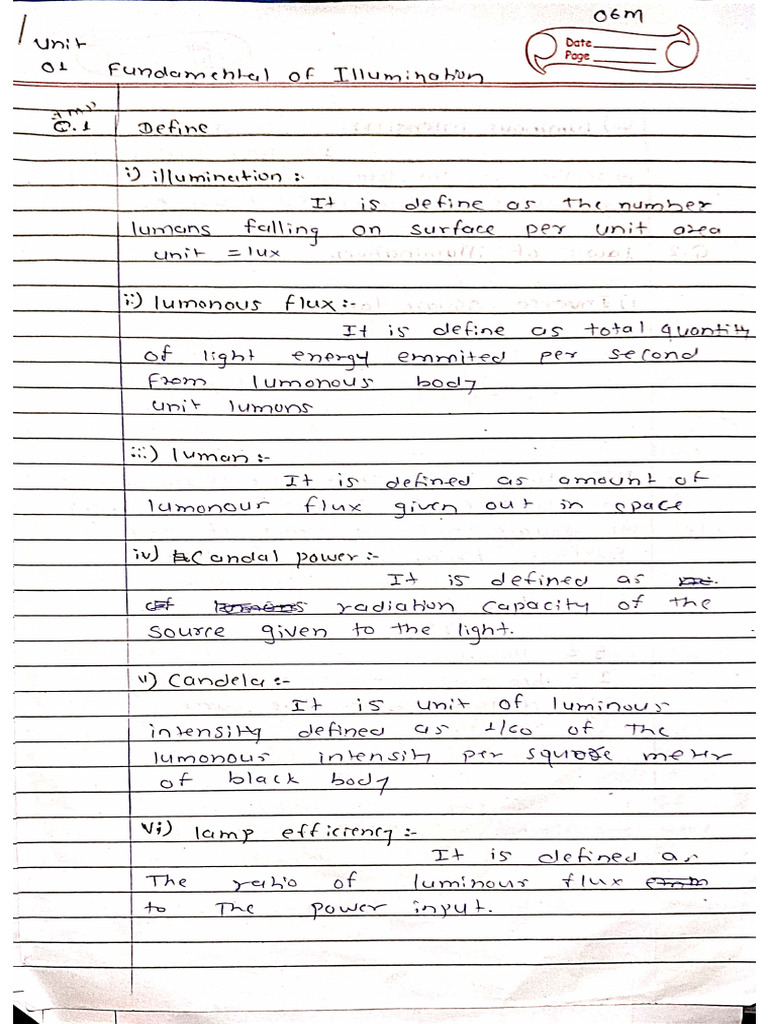 06M
Unit
Date
Page
01 Fundamental of Illumination
Q.1 Define
i) illumination :-
It is define as the number
lumans falling on surface per unit area
unit = lux
ii) lumonous flux :-
It is define as total quantity
of light energy emmited per second
from lumonous body
unit lumons
iii) luman :-
It is defined as amount of
lumonour flux given out in space
iv) Candal power :-
It is defined as
of radiation capacity of the
source given to the light.
v) Candela :-
It is unit of luminous
intensity defined as 1/60 of the
lumonous intensity per square meter
of black body
vi) lamp efficiency :-
It is defined as
The ratio of luminous flux
to The power input.